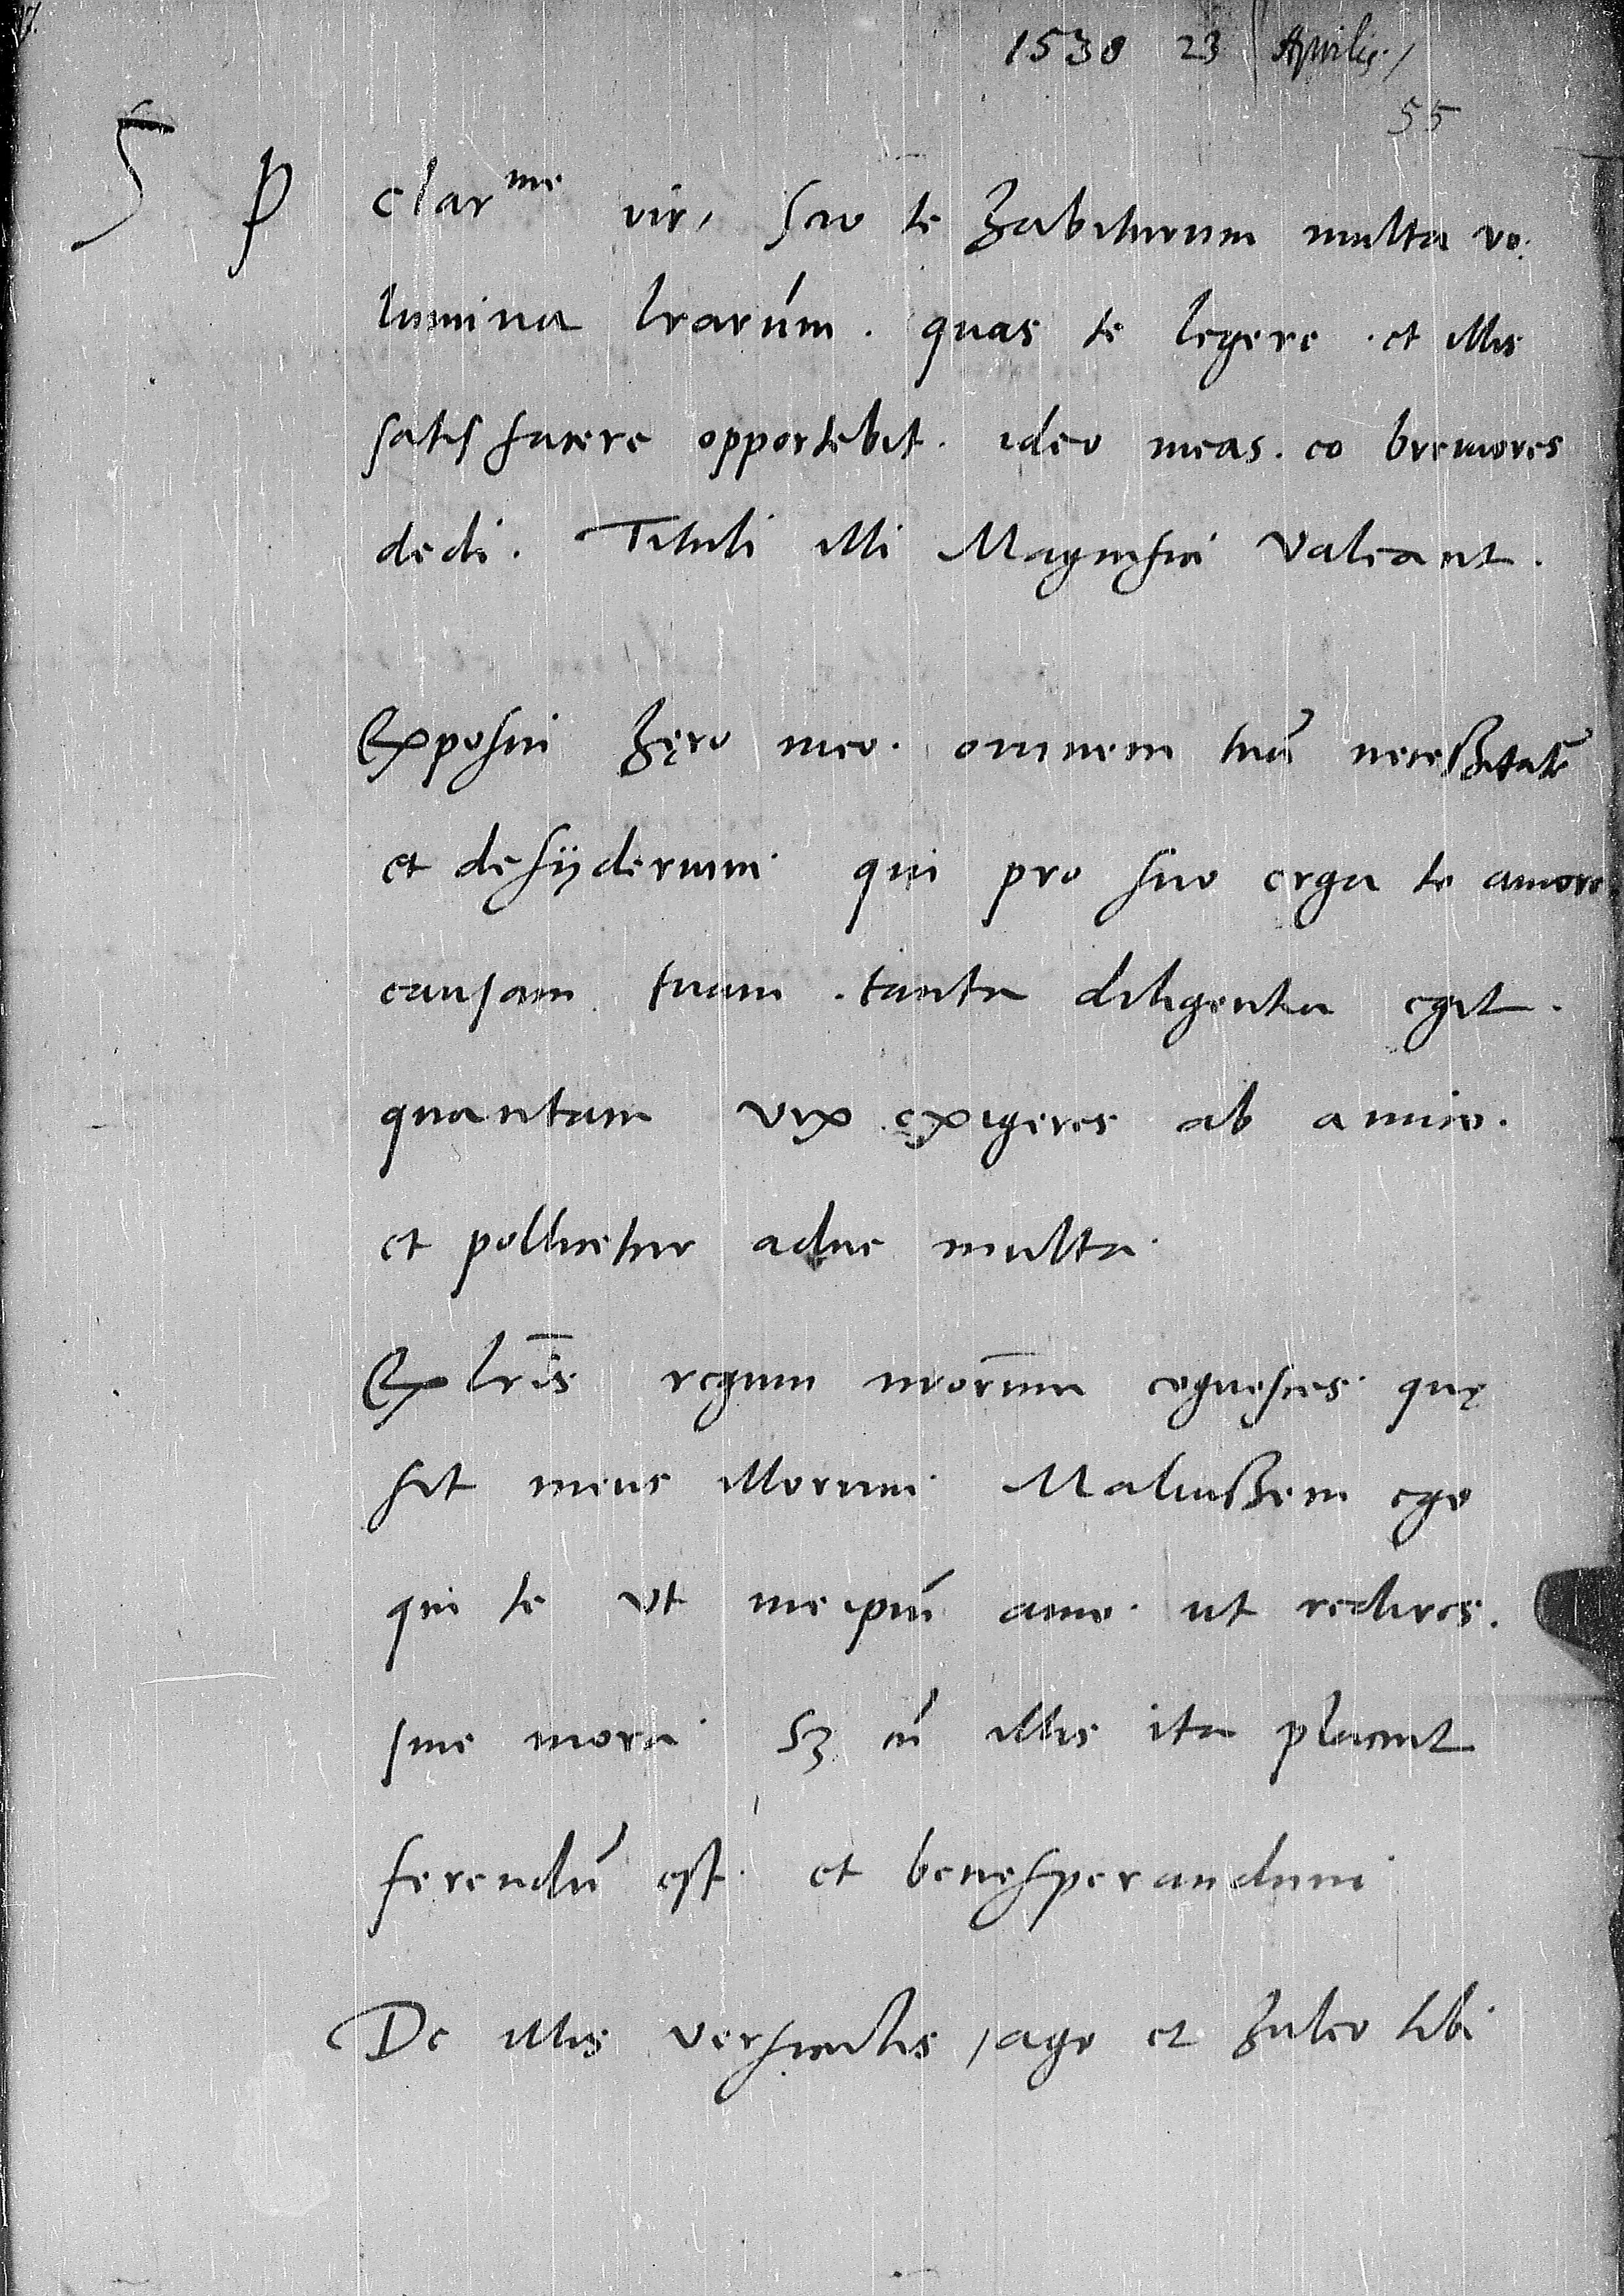 1530 23 Aprilis /
55
S P clarme vir, scio te habiturum multa vo:
lumina lrarum. quas te legere. et illis
satisfacere opportebit. ideo meas. eo breuiores
dedi. Tituli illi Magnifici valeant.
Exposui hero meo. omnem tuã necessitatẽ
et desyderium. qui pro suo erga te amore.
causam tuam. tanta diligentia egit.
quantam vix exigeres ab amico.
et pollicetur aduc multa.
Ex lris regum nrorum cognosces. quę
sit mens illorum. Maluissem ego
qui te vt meipsũ amo. ut redires.
sine mora. Sz cũ illis ita placuit
ferendũ est. et benesperandum.
De illis versiculis, ago et habeo tibi